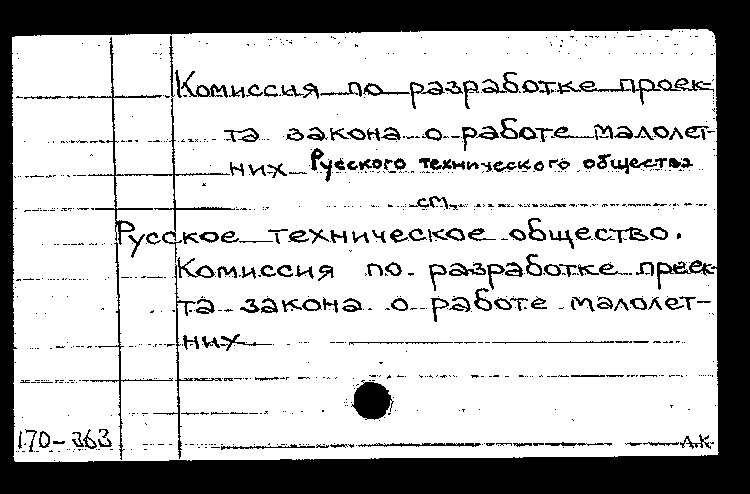 Комиссия по разработке проек-
та закона о работе малолет-
них Русского технического общества
см.
Русское техническое общество.
Комиссия по разработке проек-
та закона о работе малолет-
них.
170-363
Л.К.